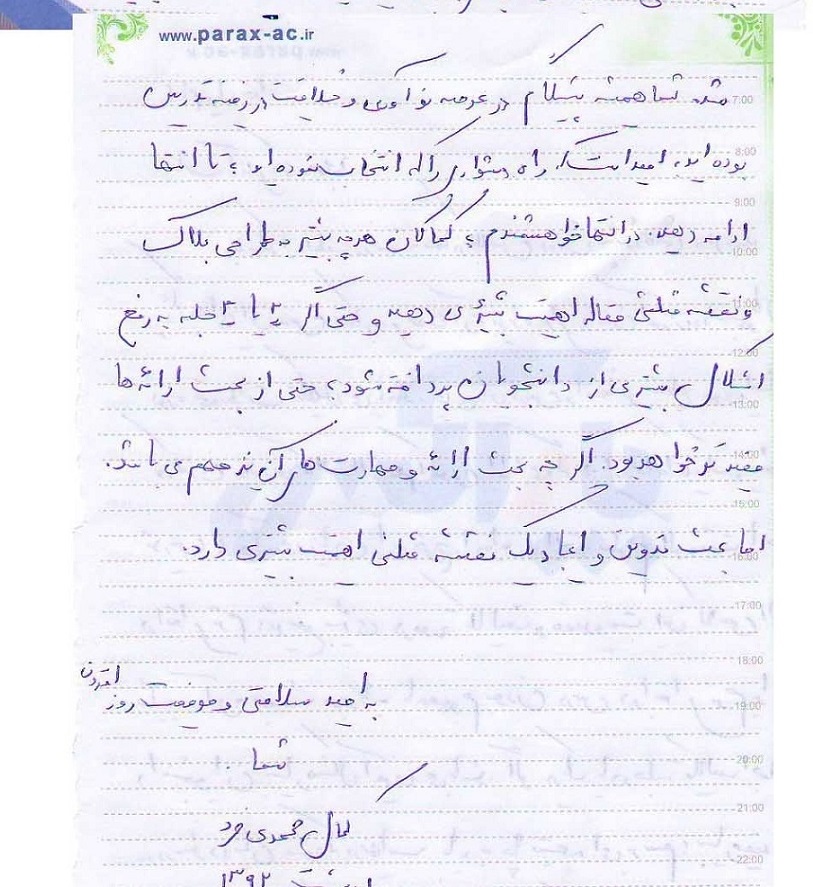 www.parax-ac.ir
شد. شما همیشه پیشگام در عرصه نوآوری و خلاقیت در زمینه تدریس
7:00
بوده اید، امید است راه دشواری را که انتخاب نموده اید، تا انتها
8:00
9:00
ادامه دهید. در انتها خواهشمندم، کماکان هر چه بیشتر به طراحی پلاک
10:00
و نقشه مثلثی مقاله اهمیت بیشتری دهید و حتی اگر ۲ یا ۳ جلسه به رفع
11:00
12:00
اشکال بیشتری از دانشجویان پرداخته شود، حتی از بحث ارائه ها
13:00
مفید تر خواهد بود. اگر چه بحث ارائه و مهارت های آن نیز مهم می باشد.
14:00
15:00
اما بحث تدوین و ایجاد یک نقشه مثلثی اهمیت بیشتری دارد.
16:00
17:00
18:00
به امید سلامتی و موفقیت روز افزون
19:00
شما
20:00
21:00
کمال محمدی فرد
22:00
۱۳۹۲